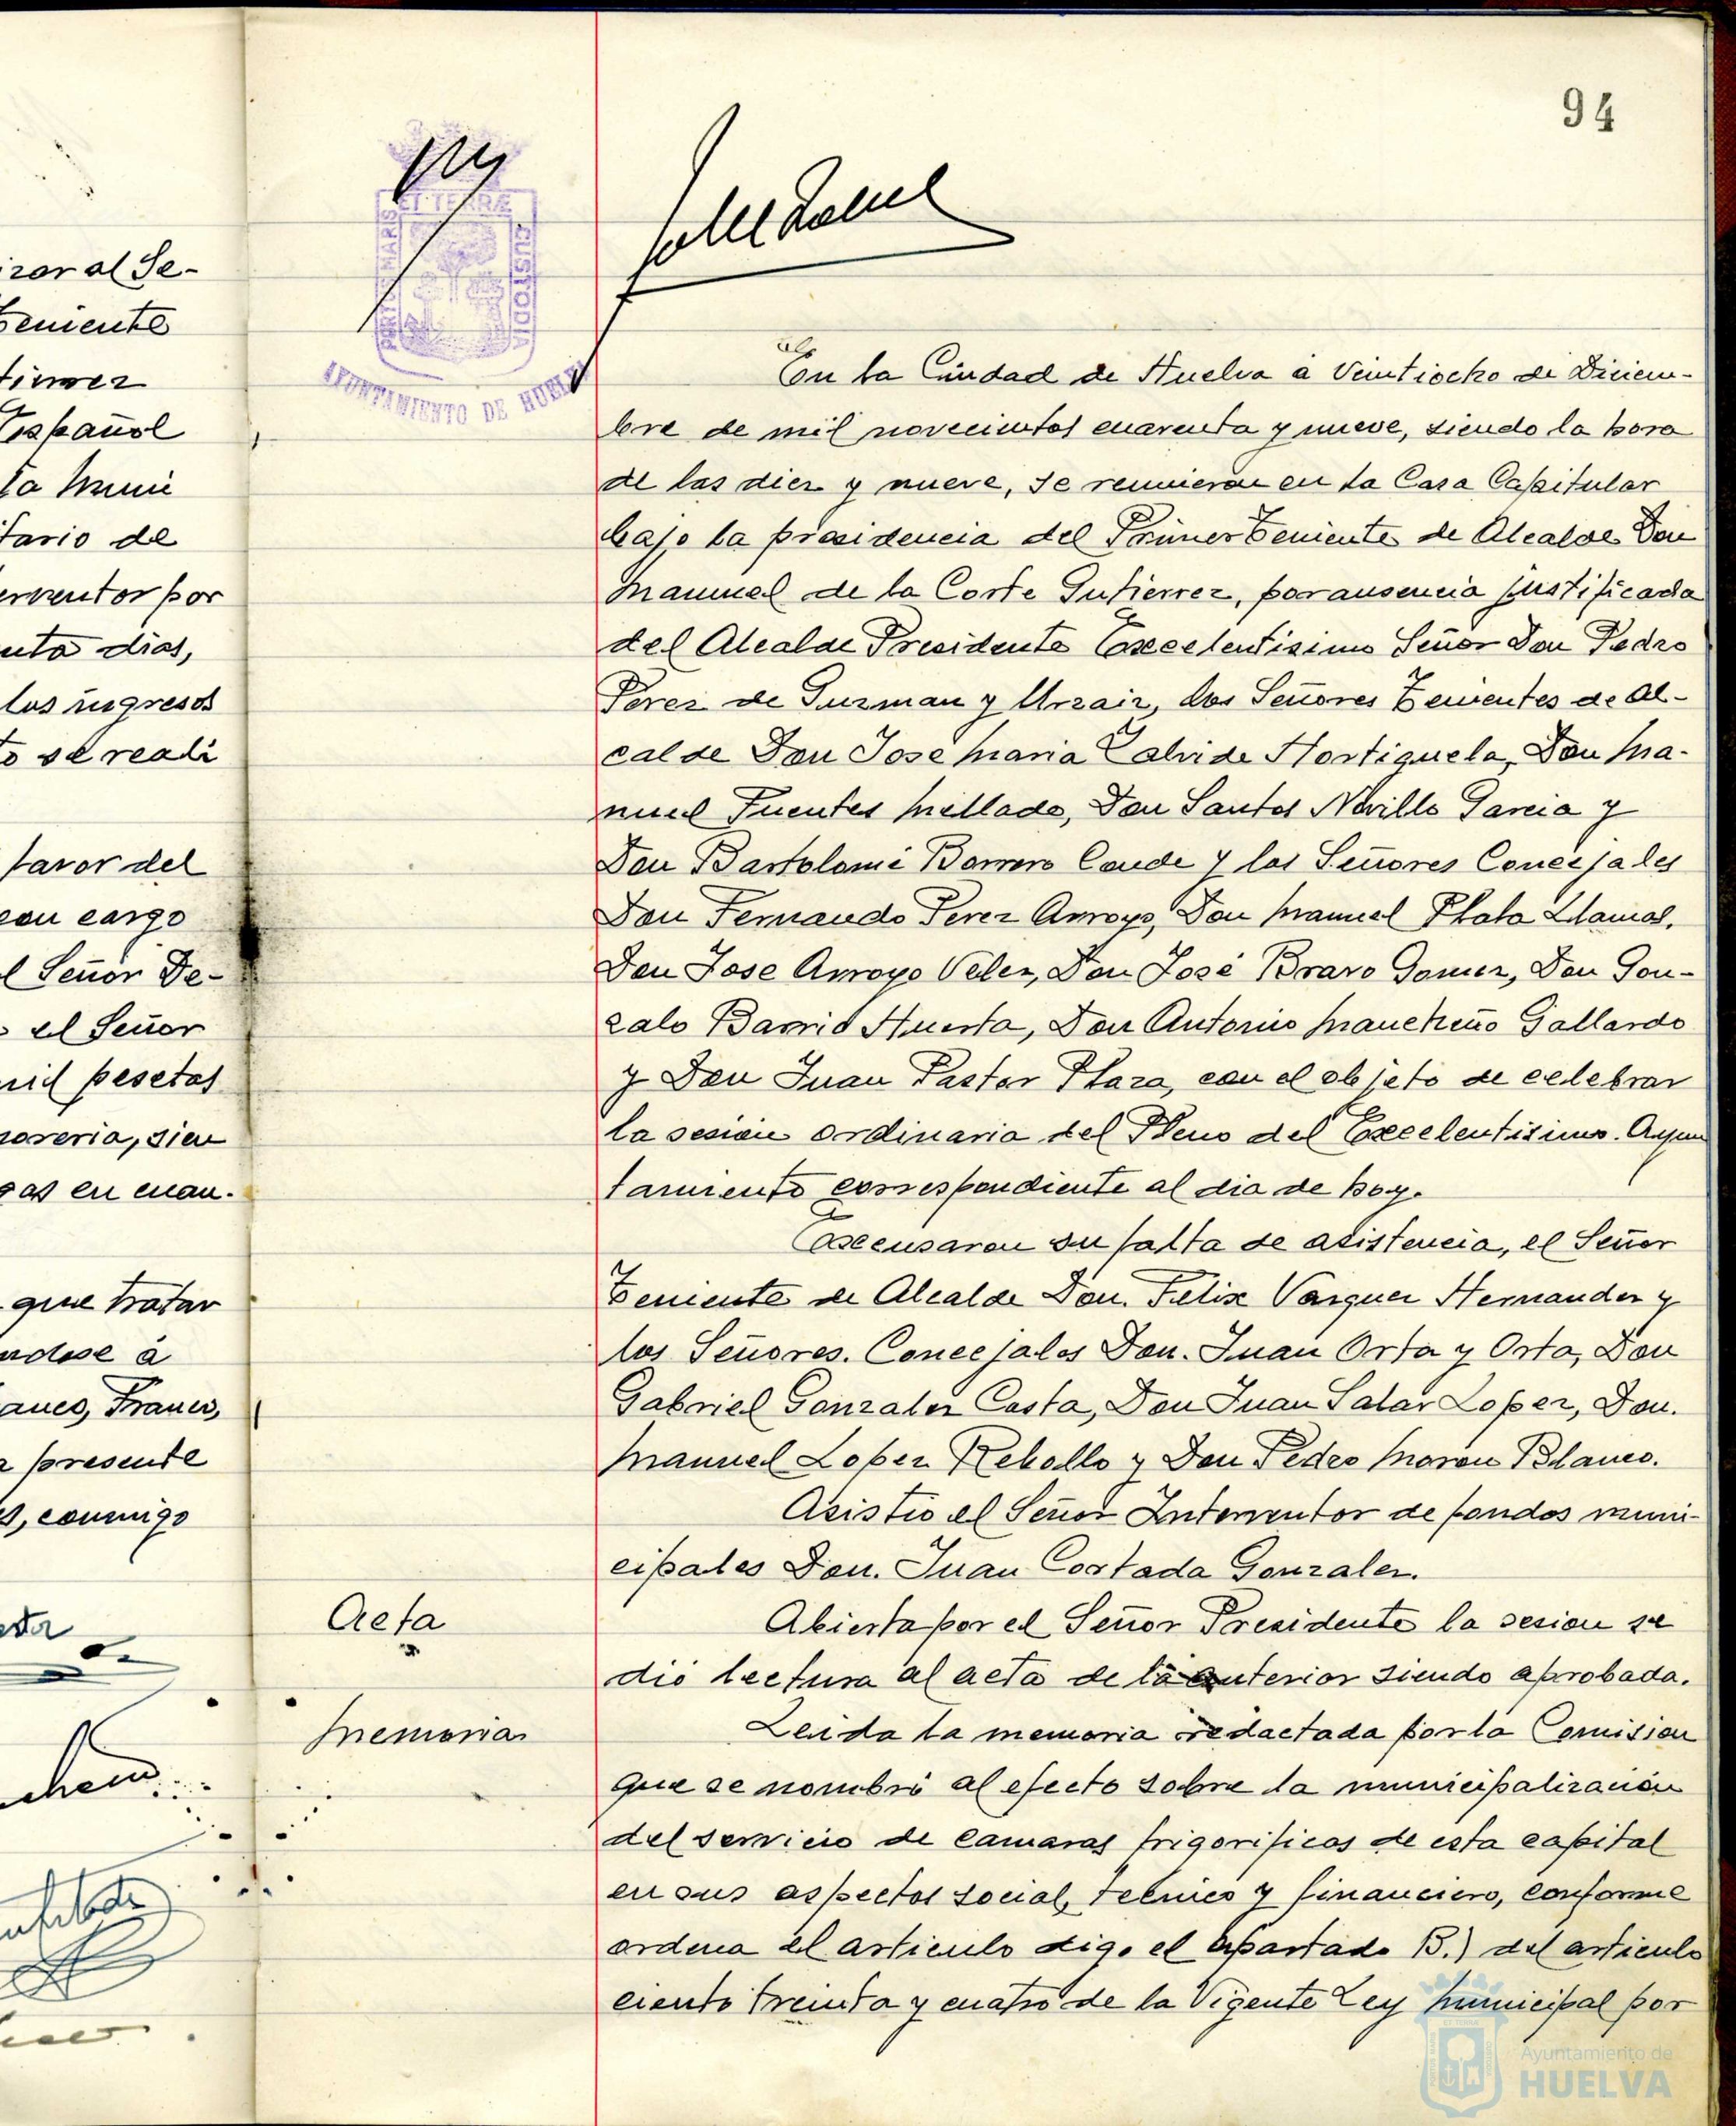 94
PORTUS MARIS ET TERRÆ CUSTODIA
AYUNTAMIENTO DE HUELVA
izar al Se-
Teniente
Español
la Muni
tario de
erventor por
nta dias,
los ingresos
to se reali
favor del
con cargo
l Señor De-
el Señor
mil pesetas
soreria, sien
gas en cuan.
que tratar
ndose á
anco, Franco,
a presente
s, conmigo
En la Ciudad de Huelva a Veintiocho de Diciem-
bre de mil novecientos cuarenta y nueve, siendo la hora
de las diez y nueve, se reunieron en la Casa Capitular
bajo la presidencia del Primer Teniente de Alcalde Don
Manuel de la Corte Gutierrez, por ausencia justificada
del Alcalde Presidente Excelentisimo Señor Don Pedro
Perez de Guzman y Urzaiz, los Señores Tenientes de Al-
calde Don Jose Maria Zalvide Hortiguela, Don Ma-
nuel Fuentes Mellado, Don Santos Novillo Garcia y
Don Bartolomé Borrero Conde y los Señores Concejales
Don Fernando Perez Arroyo, Don Manuel Plata Llamas,
Don Jose Arroyo Velez, Don José Bravo Gomez, Don Gon-
zalo Barrio Huerta, Don Antonio Mancheño Gallardo
y Don Juan Pastor Plaza, con el objeto de celebrar
la sesion ordinaria del Pleno del Excelentisimo. Ayun
tamiento correspondiente al dia de hoy.
Excusaron su falta de asistencia, el Señor
Teniente de Alcalde Don. Felix Vazquez Hernandez y
los Señores. Concejales Don. Juan Orta y Orta, Don
Gabriel Gonzalez Costa, Don Juan Salas Lopez, Don.
Manuel Lopez Rebollo y Don Pedro Moron Blanco.
Asistio el Señor Interventor de fondos muni-
cipales Don. Juan Cortada Gonzalez.
Acta
Abierta por el Señor Presidente la sesion se
dió lectura al acta de la anterior siendo aprobada.
Memoria
Leida la memoria redactada por la Comision
que se nombró al efecto sobre la municipalización
del servicio de camaras frigorificas de esta capital
en sus aspectos social, tecnico y financiero, conforme
ordena el articulo digo el apartado B.) del articulo
ciento treinta y cuatro de la Vigente Ley Municipal por
Ayuntamiento de
HUELVA